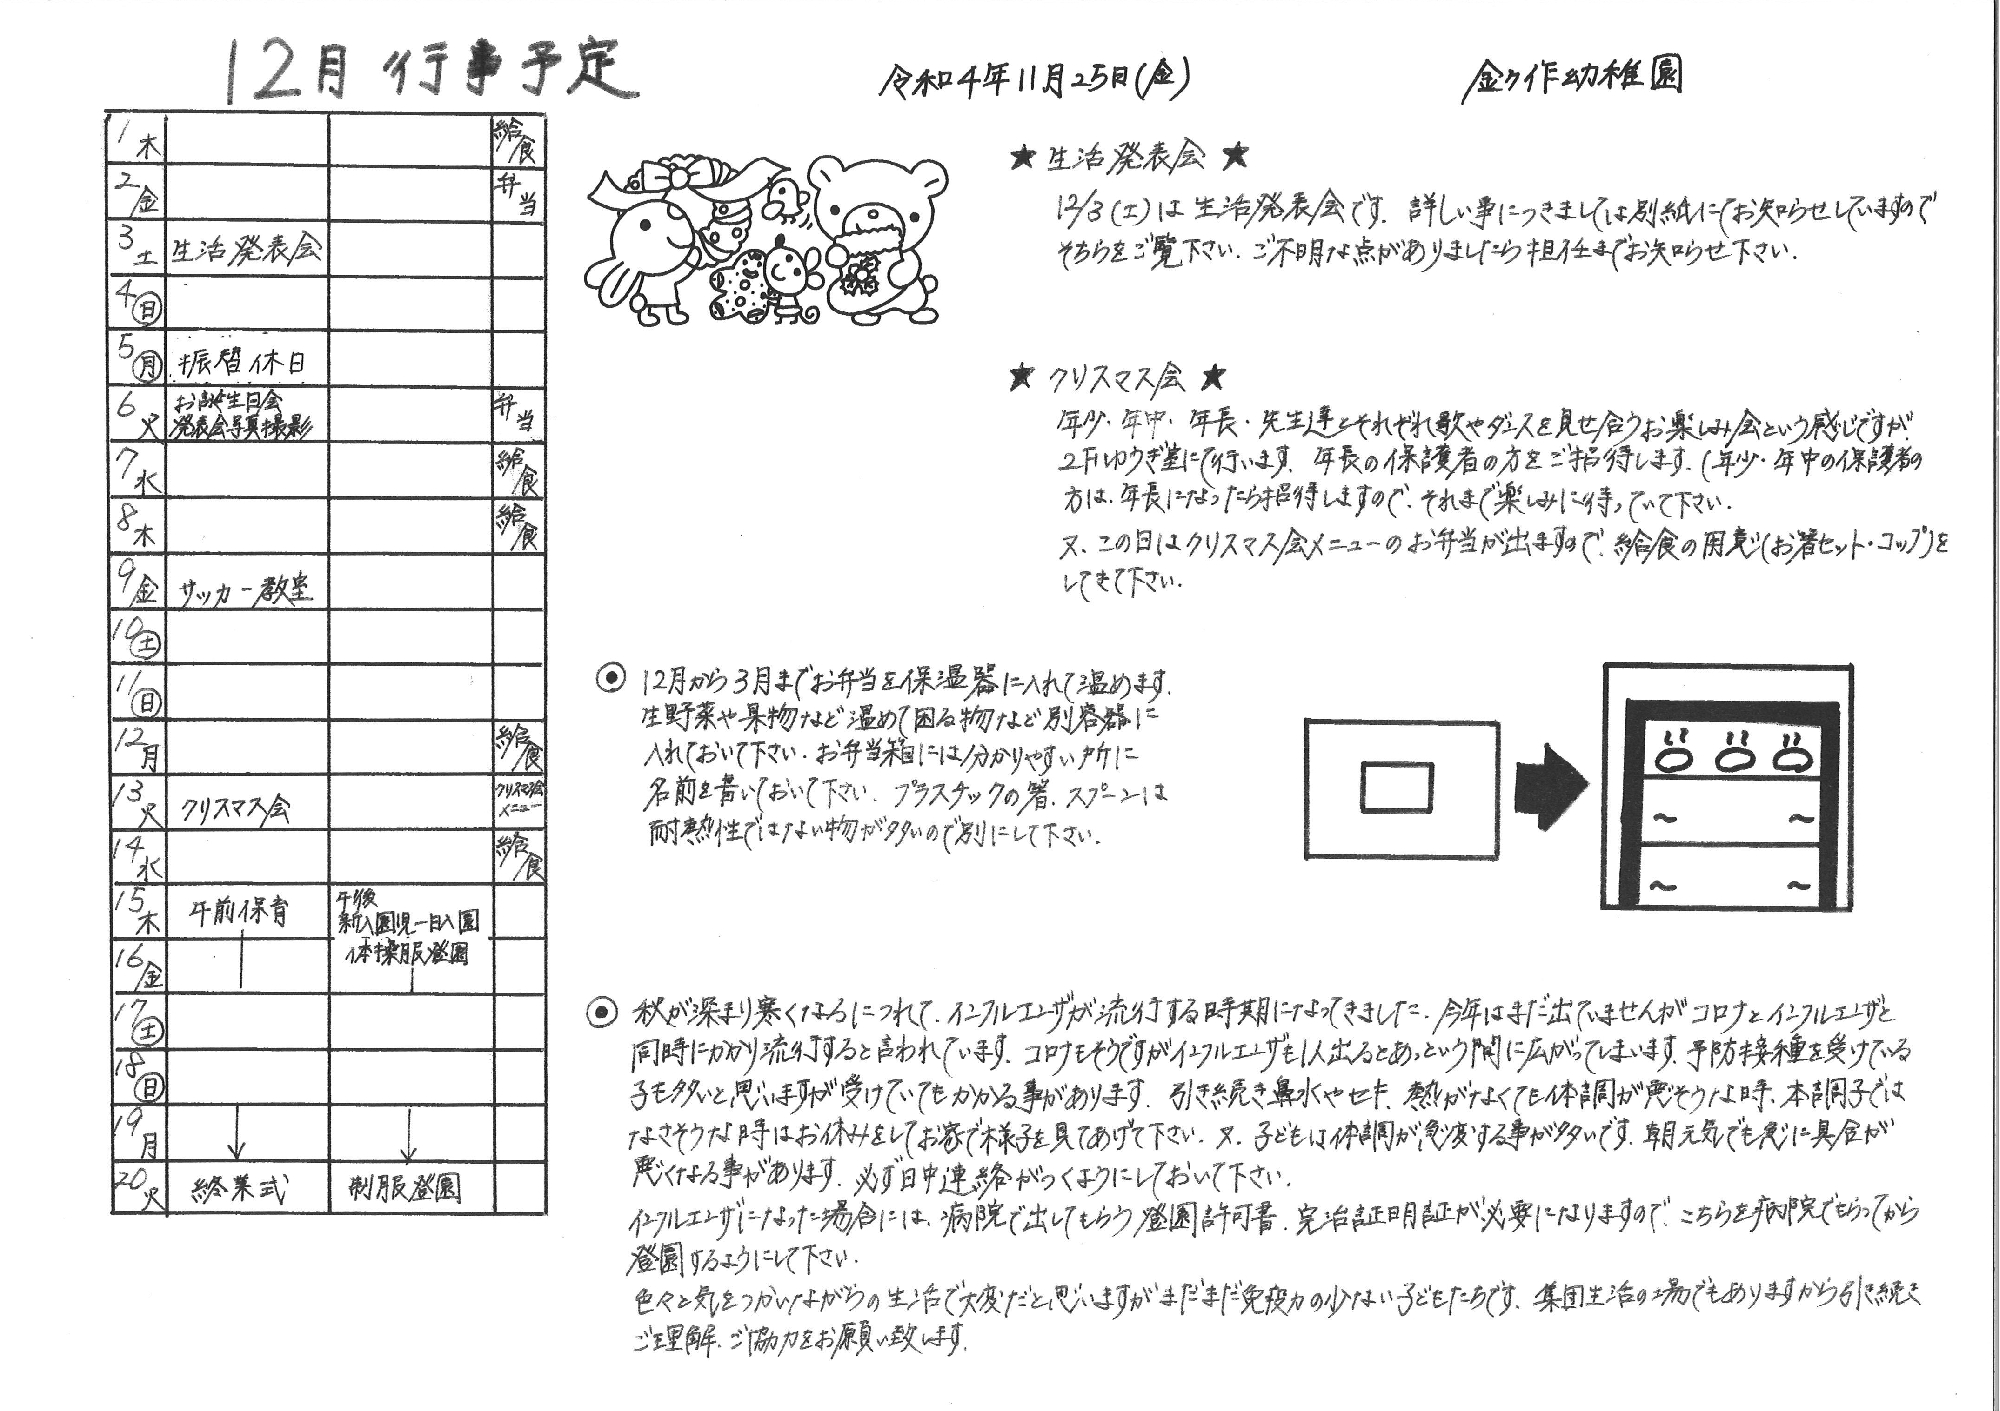 12月 行事予定
令和4年11月25日(金)
金ケ作幼稚園
1 木 給食
2 金 弁当
3 土 生活発表会
4 日
5 月 振替休日
6 火 お誕生日会 発表会写真撮影 弁当
7 水 給食
8 木 給食
9 金 サッカー教室
10 土
11 日
12 月 給食
13 火 クリスマス会 クリスマス会メニュー
14 水 給食
15 木 午前保育 午後 新入園児一日入園
16 金 体操服登園
17 土
18 日
19 月
20 火 終業式 制服登園
★ 生活発表会 ★
12/3(土)は生活発表会です。詳しい事につきましては別紙にてお知らせしていますので
そちらをご覧下さい。ご不明な点がありましたら担任までお知らせ下さい。
★ クリスマス会 ★
年少・年中・年長・先生達とそれぞれ歌やダンスを見せ合うお楽しみ会という感じですが、
2Fゆうぎ室にて行います。年長の保護者の方をご招待します。(年少・年中の保護者の
方は、年長になったら招待しますので、それまで楽しみに待っていて下さい。
又、この日はクリスマス会メニューのお弁当が出ますので、給食の用意(お箸セット・コップ)を
してきて下さい。
◉ 12月から3月までお弁当を保温器に入れて温めます。
生野菜や果物など温めて困る物など別容器に
入れておいて下さい。お弁当箱には分かりやすい所に
名前を書いておいて下さい。プラスチックの箸、スプーンは
耐熱性ではない物が多いので別にして下さい。
◉ 秋が深まり寒くなるにつれて、インフルエンザが流行する時期になってきました。今年はまだ出ていませんがコロナとインフルエンザと
同時にかかり流行すると言われています。コロナもそうですがインフルエンザも1人出るとあっという間に広がってしまいます。予防接種を受けている
子も多いと思いますが受けていてもかかる事があります。引き続き鼻水やセキ、熱がなくても体調が悪そうな時、本調子では
なさそうな時はお休みをしてお家で様子を見てあげて下さい。又、子どもは体調が急変する事が多いです。朝元気でも急に具合が
悪くなる事があります。必ず日中連絡がつくようにしておいて下さい。
インフルエンザになった場合には、病院で出してもらう登園許可書、完治証明証が必要になりますので、こちらを病院でもらってから
登園するようにして下さい。
色々と気をつかいながらの生活で大変だと思いますがまだまだ免疫力の少ない子どもたちです。集団生活の場でもありますから引き続き
ご理解、ご協力をお願い致します。